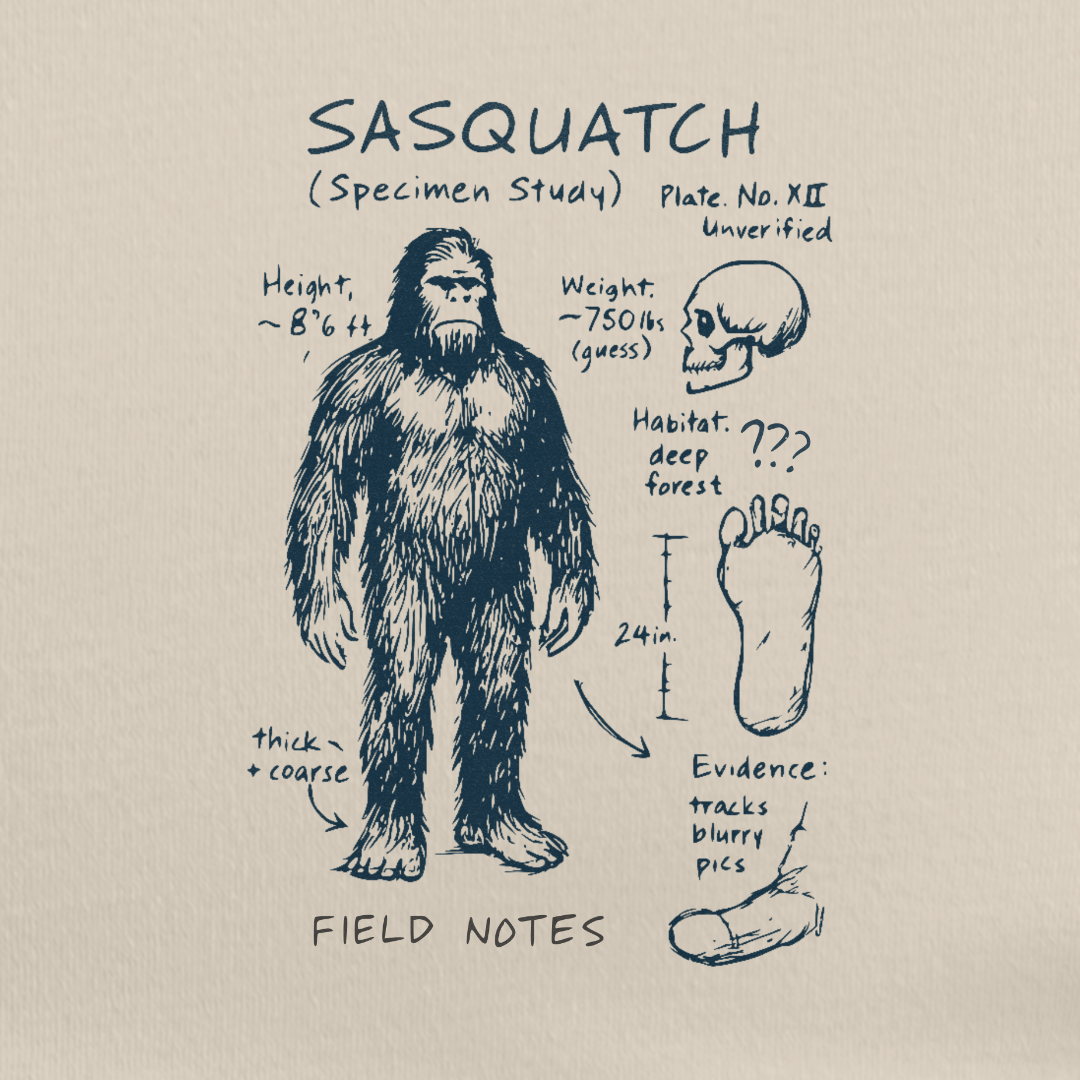 SASQUATCH
(Specimen Study)
Plate. No. XII
Unverified
Height,
~ 8'6 ft
Weight.
~750 lbs
(guess)
Habitat. ???
deep
forest
24in.
thick
+ coarse
Evidence:
tracks
blurry
pics
FIELD NOTES